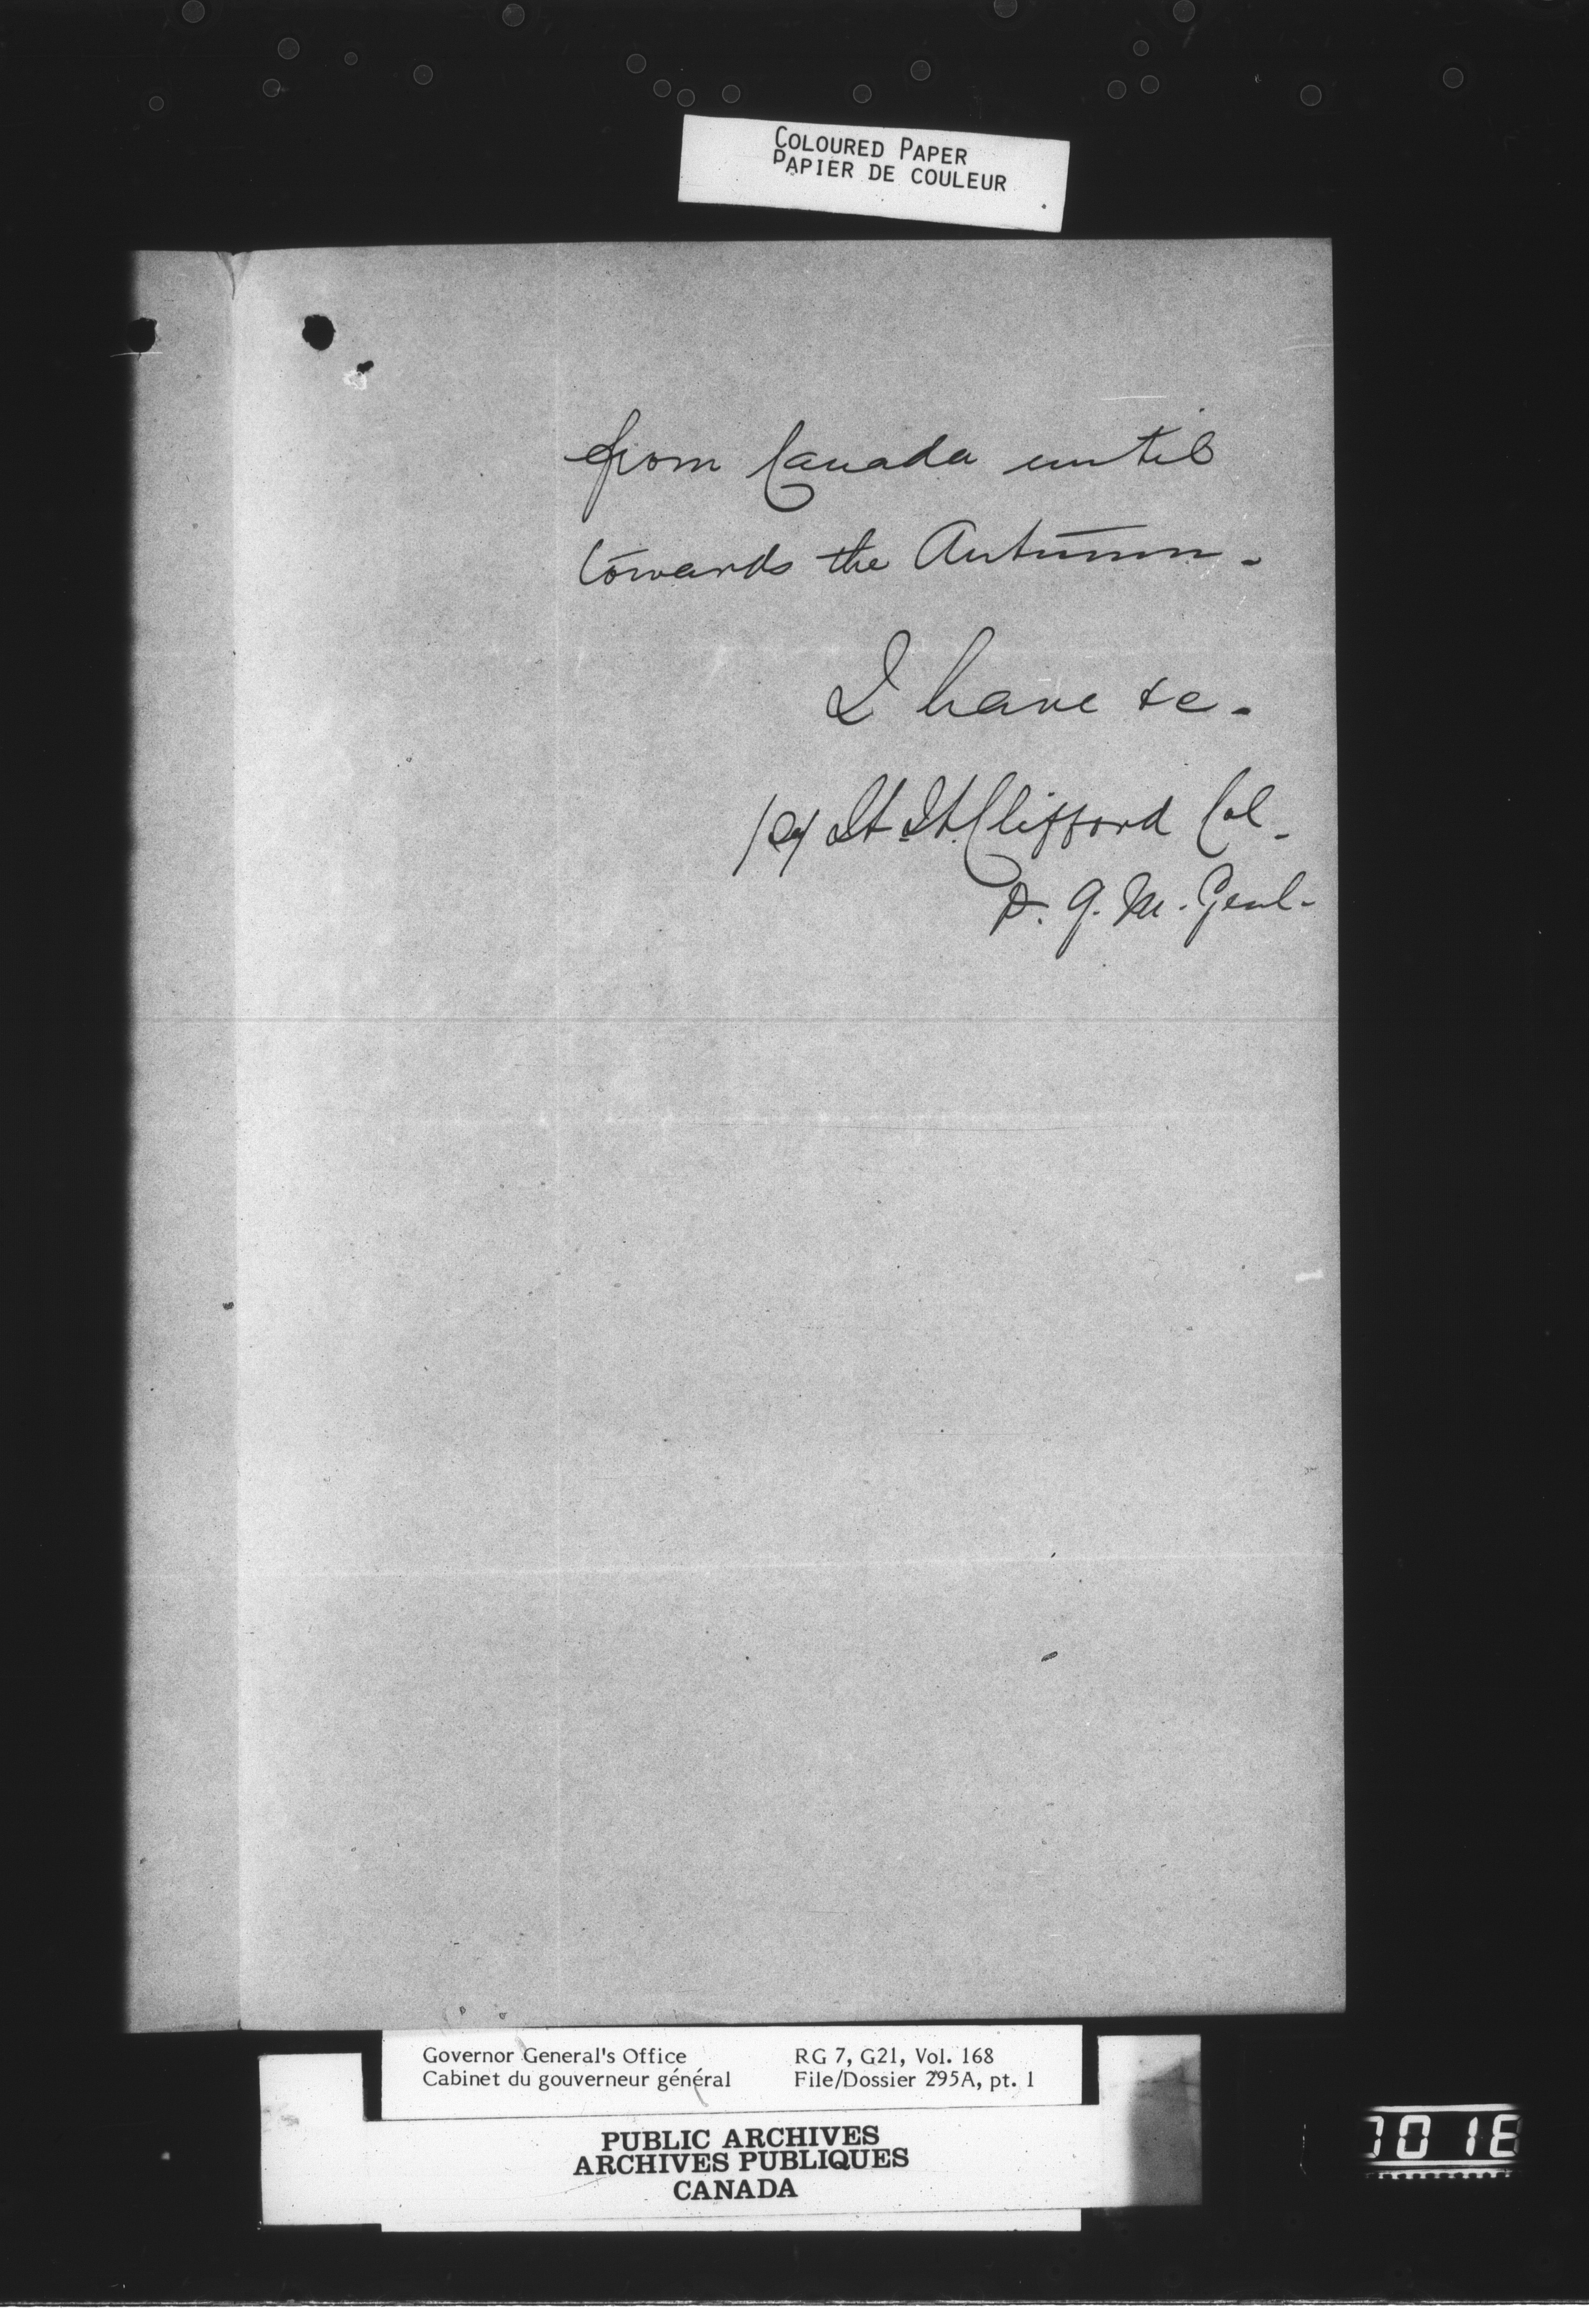 COLOURED PAPER
PAPIER DE COULEUR
from Canada until
towards the Autumn.
I have &c.
Clifford Col.
D. Q. M. Genl.
Governor General's Office
Cabinet du gouverneur général
RG 7, G21, Vol. 168
File/Dossier 295A, pt. 1
PUBLIC ARCHIVES
ARCHIVES PUBLIQUES
CANADA